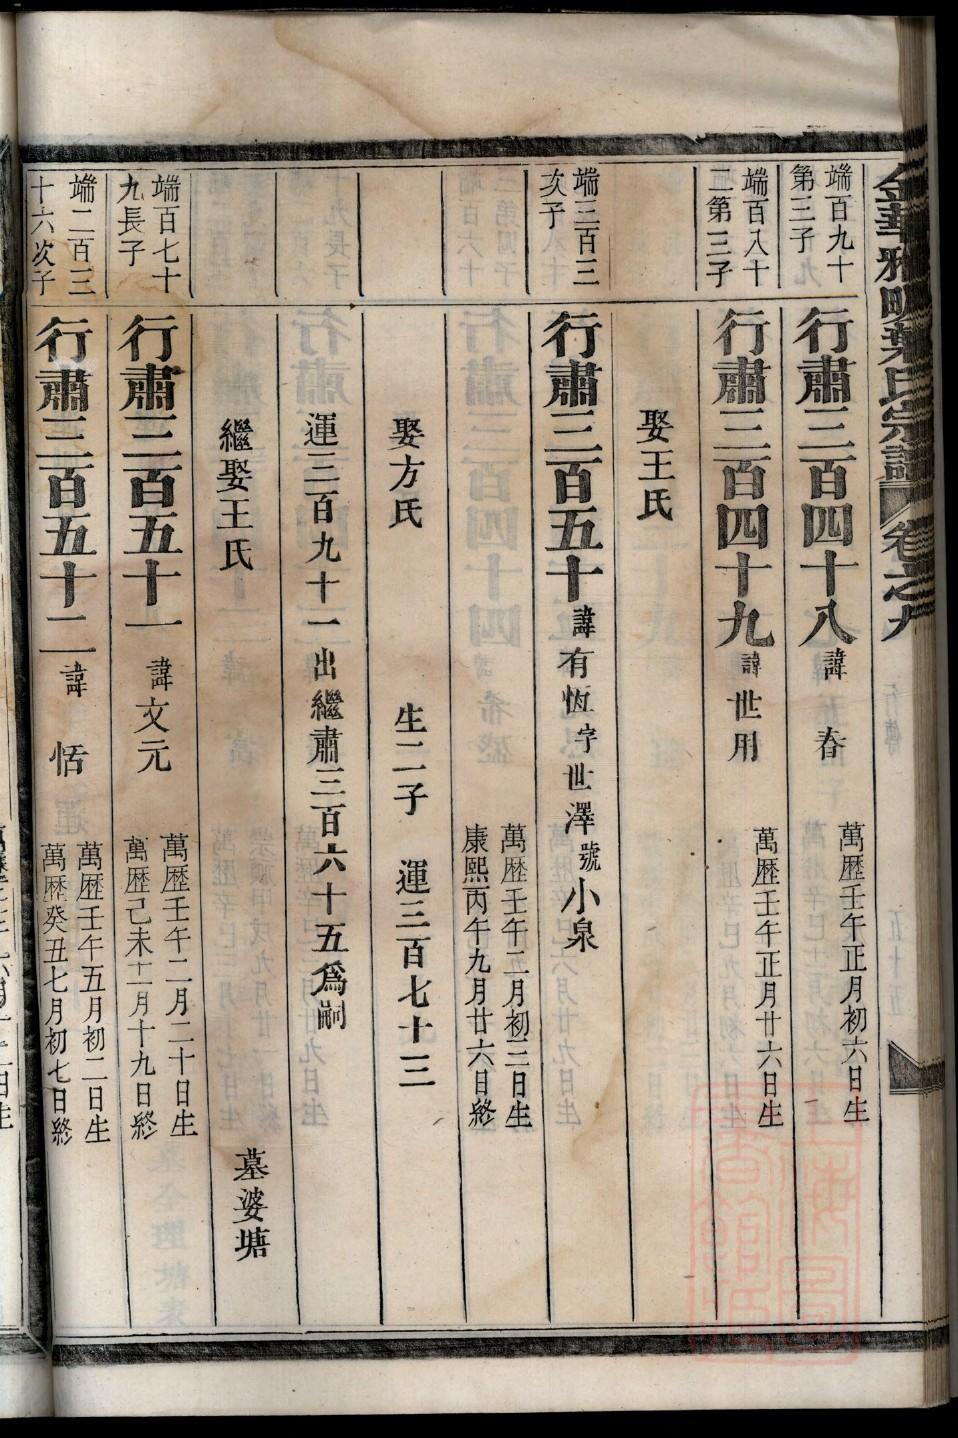 金華雅畈葉氏宗譜 卷之九
端百九十
第三子
行肅三百四十八 諱 春
萬歷壬午正月初六日生
端百八十
二第三子
行肅三百四十九 諱世用
萬歷壬午正月廿六日生
娶王氏
端三百三
次子
行肅三百五十 諱有恆字世澤號小泉
萬歷壬午二月初三日生
康熙丙午九月廿六日終
娶方氏 生二子 運三百七十三
運三百九十一出繼肅三百六十五爲嗣
繼娶王氏 墓婆塘
端百七十
九長子
行肅三百五十一 諱文元
萬歷壬午二月二十日生
萬歷己未十一月十九日終
端二百三
十六次子
行肅三百五十二 諱 恬
萬歷壬午五月初二日生
萬歷癸丑七月初七日終